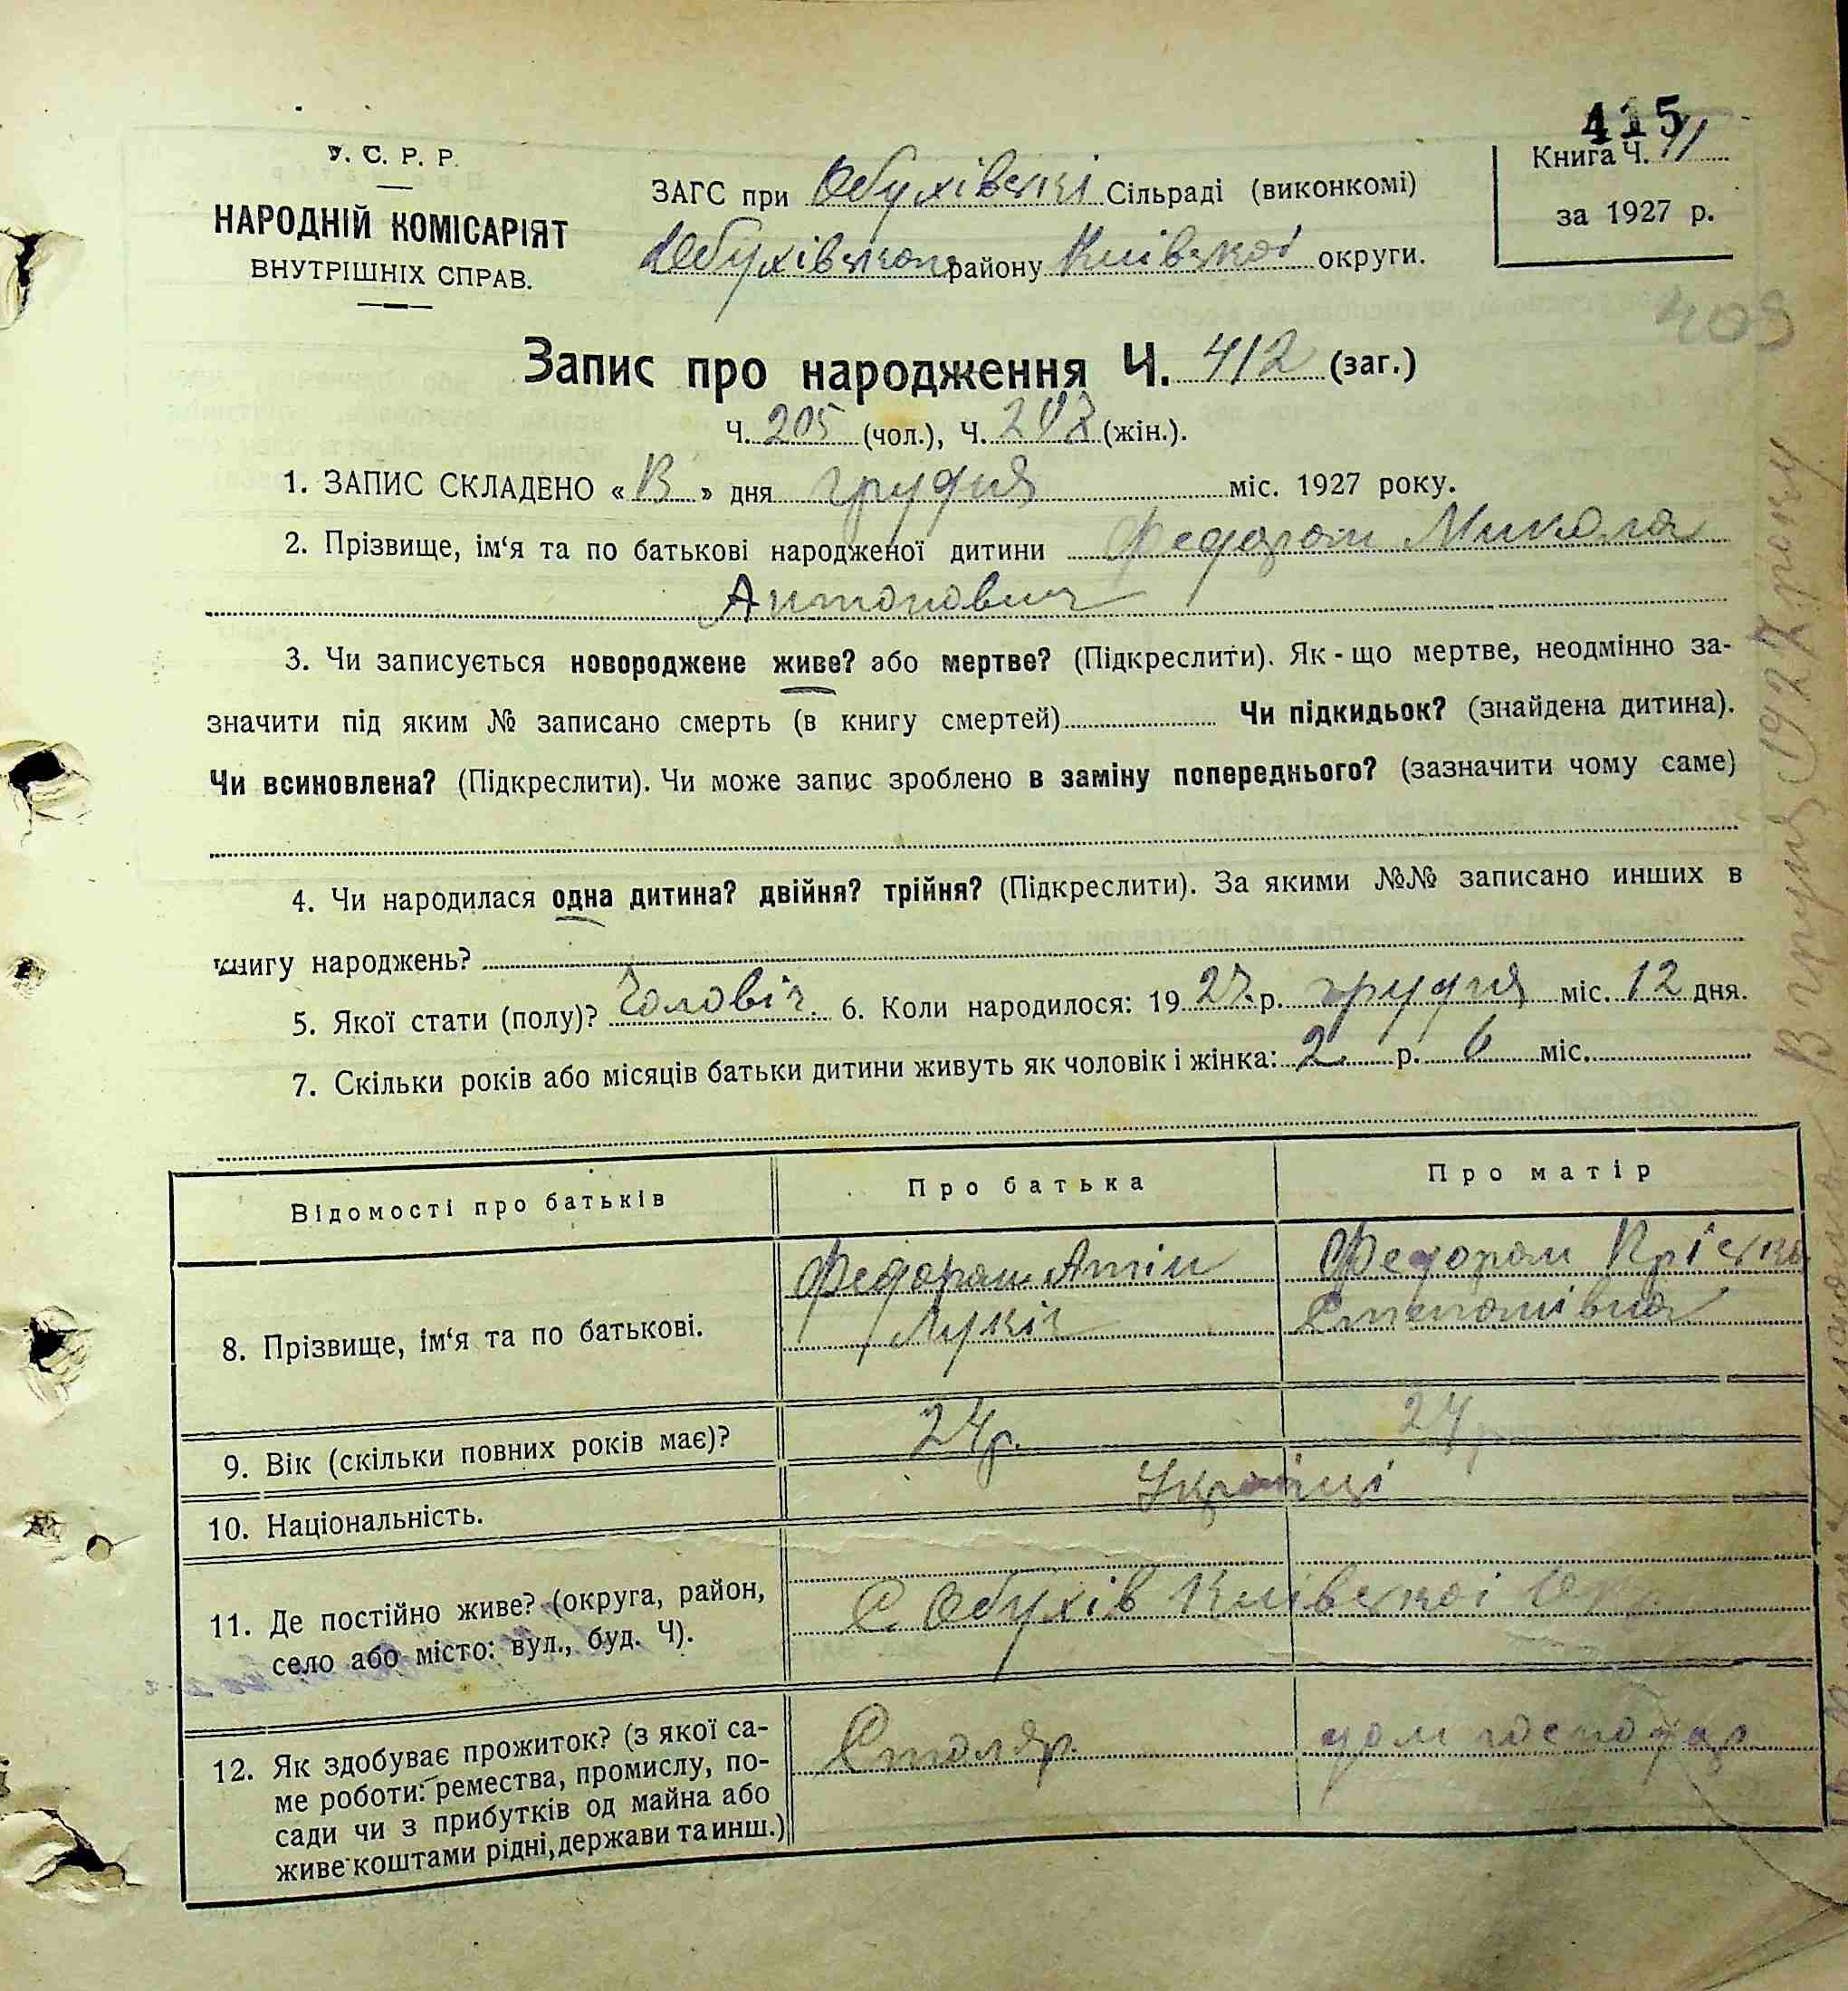 415
У. С. Р. Р.
НАРОДНІЙ КОМІСАРІЯТ
ВНУТРІШНІХ СПРАВ.
ЗАГС при Обухівскі Сільраді (виконкомі)
Обухівского району Київскої округи.
Книга Ч. 11
за 1927 р.
409
Запис про народження Ч. 412 (заг.)
Ч. 205 (чол.), Ч. 207 (жін.).
1. ЗАПИС СКЛАДЕНО « 13 » дня грудня міс. 1927 року.
2. Прізвище, ім‘я та по батькові народженої дитини Федораш Микола
Антонович
3. Чи записується новороджене живе? або мертве? (Підкреслити). Як-що мертве, неодмінно за-
значити під яким № записано смерть (в книгу смертей) Чи підкидьок? (знайдена дитина).
Чи всиновлена? (Підкреслити). Чи може запис зроблено в заміну попереднього? (зазначити чому саме)
4. Чи народилася одна дитина? двійня? трійня? (Підкреслити). За якими №№ записано инших в
книгу народжень?
5. Якої стати (полу)? Чоловіч. 6. Коли народилося: 1927 р. грудня міс. 12 дня.
7. Скільки років або місяців батьки дитини живуть як чоловік і жінка: 2 р. 6 міс.
Відомості про батьків Про батька Про матір
8. Прізвище, ім‘я та по батькові.
Федораш Антін
Лукіч
Федораш Прісьь
Степанівна
9. Вік (скільки повних років має)? 24 р. 24
10. Національність. Українці
11. Де постійно живе? (округа, район,
село або місто: вул., буд. Ч).
С Обухів Київскої Окр.
12. Як здобуває прожиток? (з якої са-
ме роботи: ремества, промислу, по-
сади чи з прибутків од майна або
живе коштами рідні, держави та инш.)
Столяр. дом господар.
грудня 1927 року